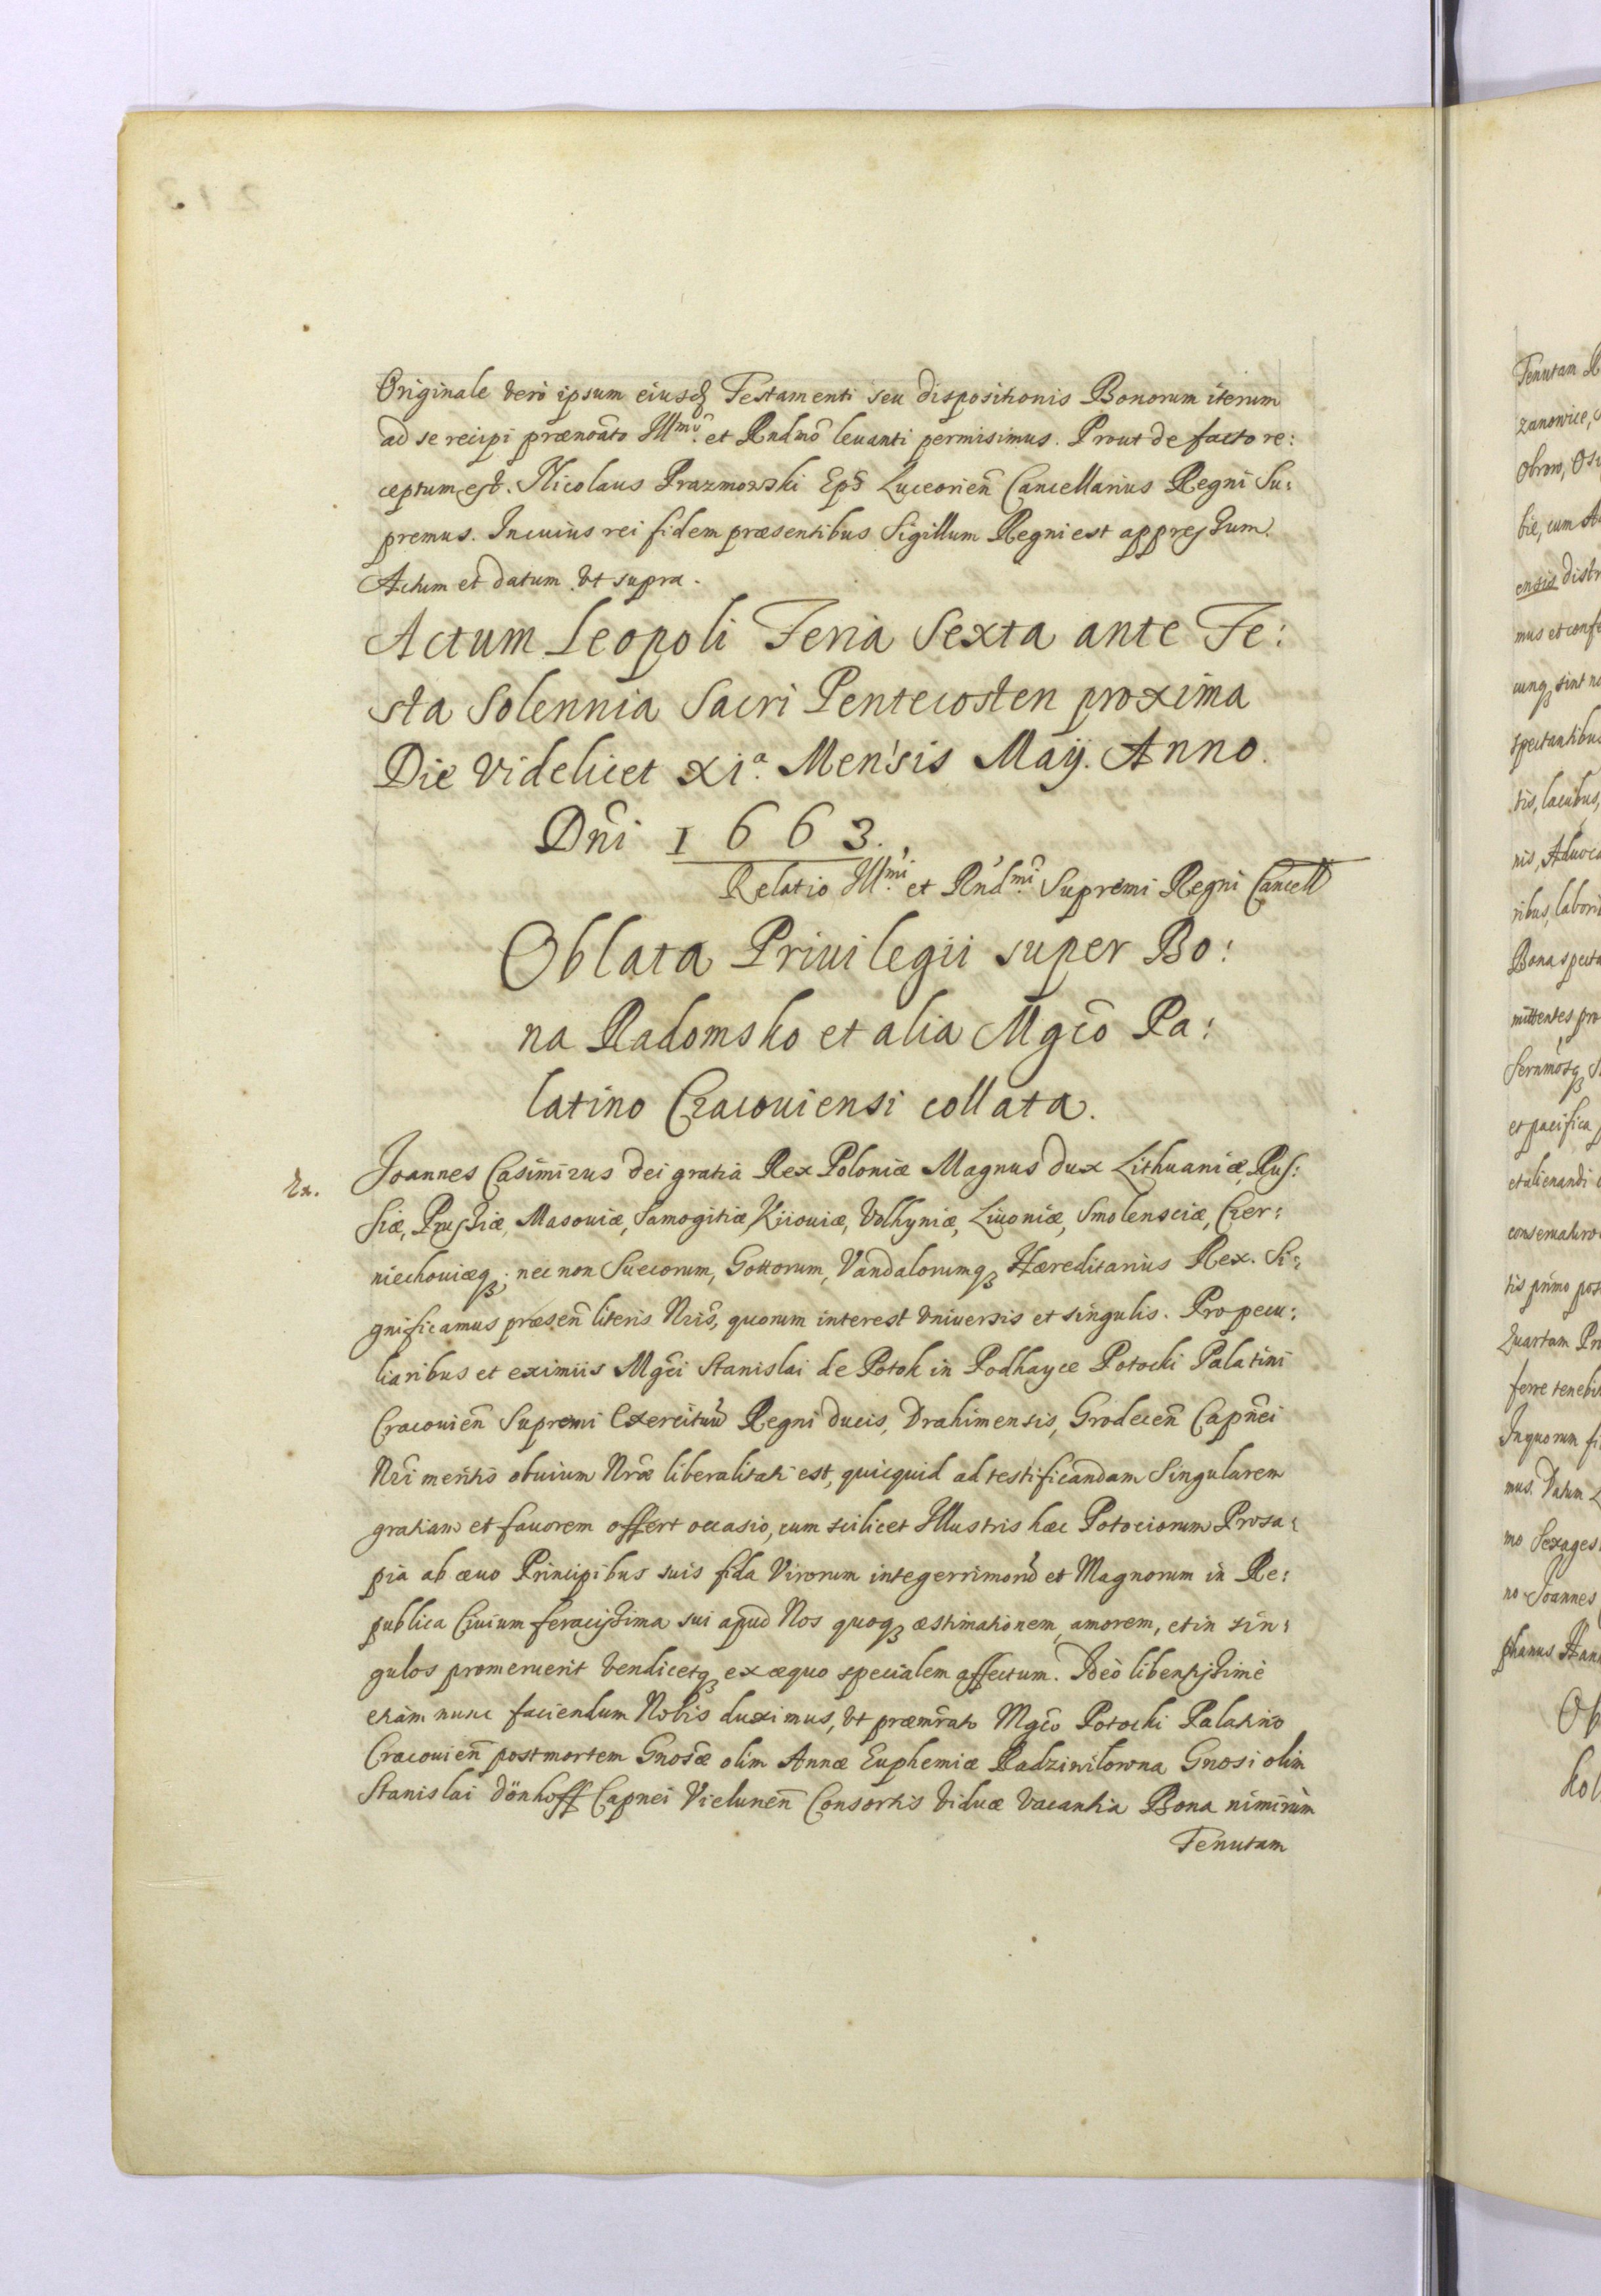 Originale verò ipsum eiusd Testamenti seu dispositionis Bonorum iterum
ad se recipi prænoãto Illmõ. et Rndmõ levanti permisimus. Prout de facto re:
ceptum est. Nicolaus Prazmowski Eps̃ Luceorieñ Cancellarius Regni Su:
premus. In cuius rei fidem præsentibus Sigillum Regni est appressum.
Actum et datum vt supra.
Actum Leopoli Feria Sexta ante Fe:
sta Solennia Sacri Pentecosten proxima
Die videlicet XIa. Mensis Maij. Anno.
Dñi 1663.
Relatio Illmi. et Rndmi. Supremi Regni Cancell
Oblata Priuilegii super Bo:
na Radomsko et alia Mgcõ Pa:
latino Cracouiensi collata.
Joannes Casimirus Dei gratia Rex Poloniæ Magnus Dux Lithuaniæ, Rus:
siæ, Prussiæ, Masouiæ, Samogitiæ, Kiiouiæ, Volhyniæ, Liuoniæ, Smolensciæ, Czer:
niechouiæqꝫ; nec non Suecorum, Gottorum, Vandalorumqꝫ Hæreditarius Rex. Si:
gnificamus præseñ literis Nris̃, quorum interest vniuersis et singulis. Pro pecu:
liaribus et eximiis Mgc̃i Stanislai de Potok in Podhayce Potocki Palatini
Cracouieñ Supremi Exercituũ Regni Ducis, Drahimensis, Grodeceñ Capñei
Nr̃i meritis obuium Nræ̃ liberalitati est, quicquid ad testificandam Singularem
gratiam et fauorem offert occasio, cum scilicet Illustris hæc Potociorum Prosa:
pia ab æuo Principibus suis fida Virorum integerrimorũ et Magnorum in Re:
publica Ciuium feracissima sui apud Nos quoqꝫ æstimationem, amorem, et in sin:
gulos promeruerit vendicetqꝫ ex æquo specialem affectum. Ideò libentissimè
etiam nunc faciendum Nobis duximus, vt præmr̃ato Mgcõ Potocki Palatino
Cracouieñ post mortem Gnosæ̃ olim Annæ Euphemiæ Radziwilowna Gnosi olim
Stanislai Dönhoff Capnei Vieluneñ Consortis viduæ vacantia Bona nimirùm
Tenutam